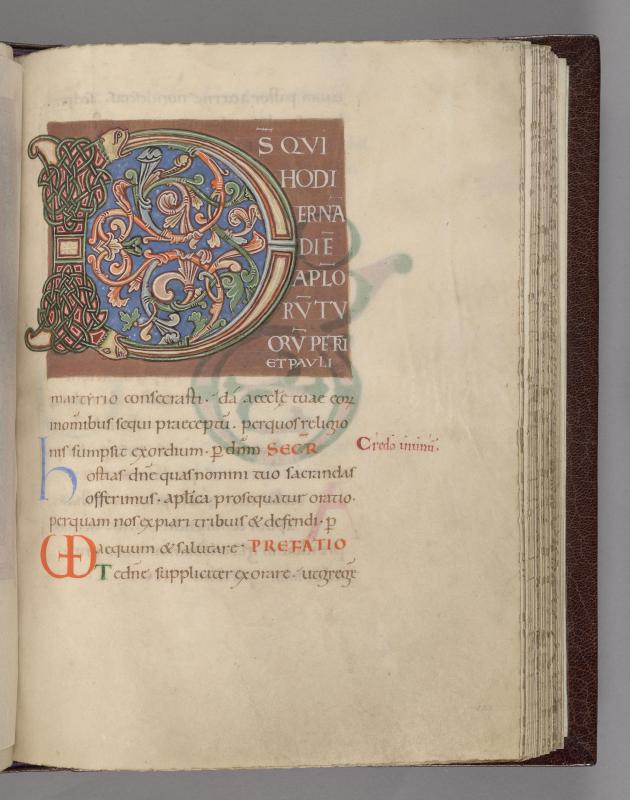 D
S̄ QVI
HODI
ERNĀ
DIĒ
APL̄O
RV̄ TV
ORV̄ PETRI
ET PAVLI
martyrio consecrasti · da aeccle tuae eorū
monibus sequi praeceptū · per quos religio
nis sumpsit exordium · p̱ dnm SECR̄
Credo in unū.
hostias dne quas nomini tuo sacrandas
offerimus · aplica prosequatur oratio ·
per quam nos expiari tribuis & defendi · p̱
VD aequum & salutare · PREFATIO
Te dne suppliciter exorare · ut gregē